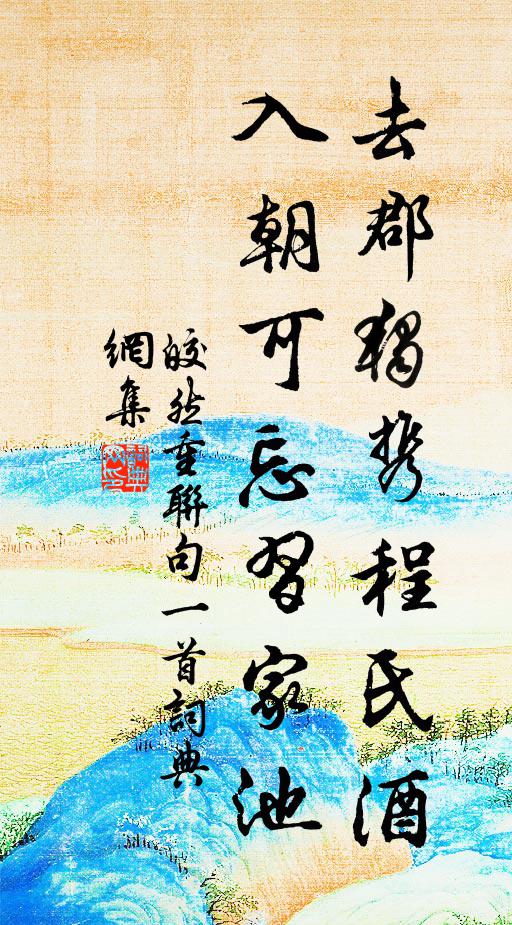 去郡獨携程氏酒
入朝可忘習家池
皎然重聯句一首詞典
網集